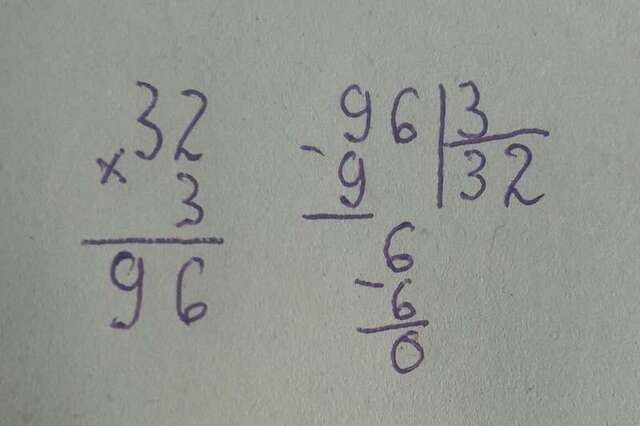 32
× 3
96
96 | 3
- 9 | 32
6
- 6
0